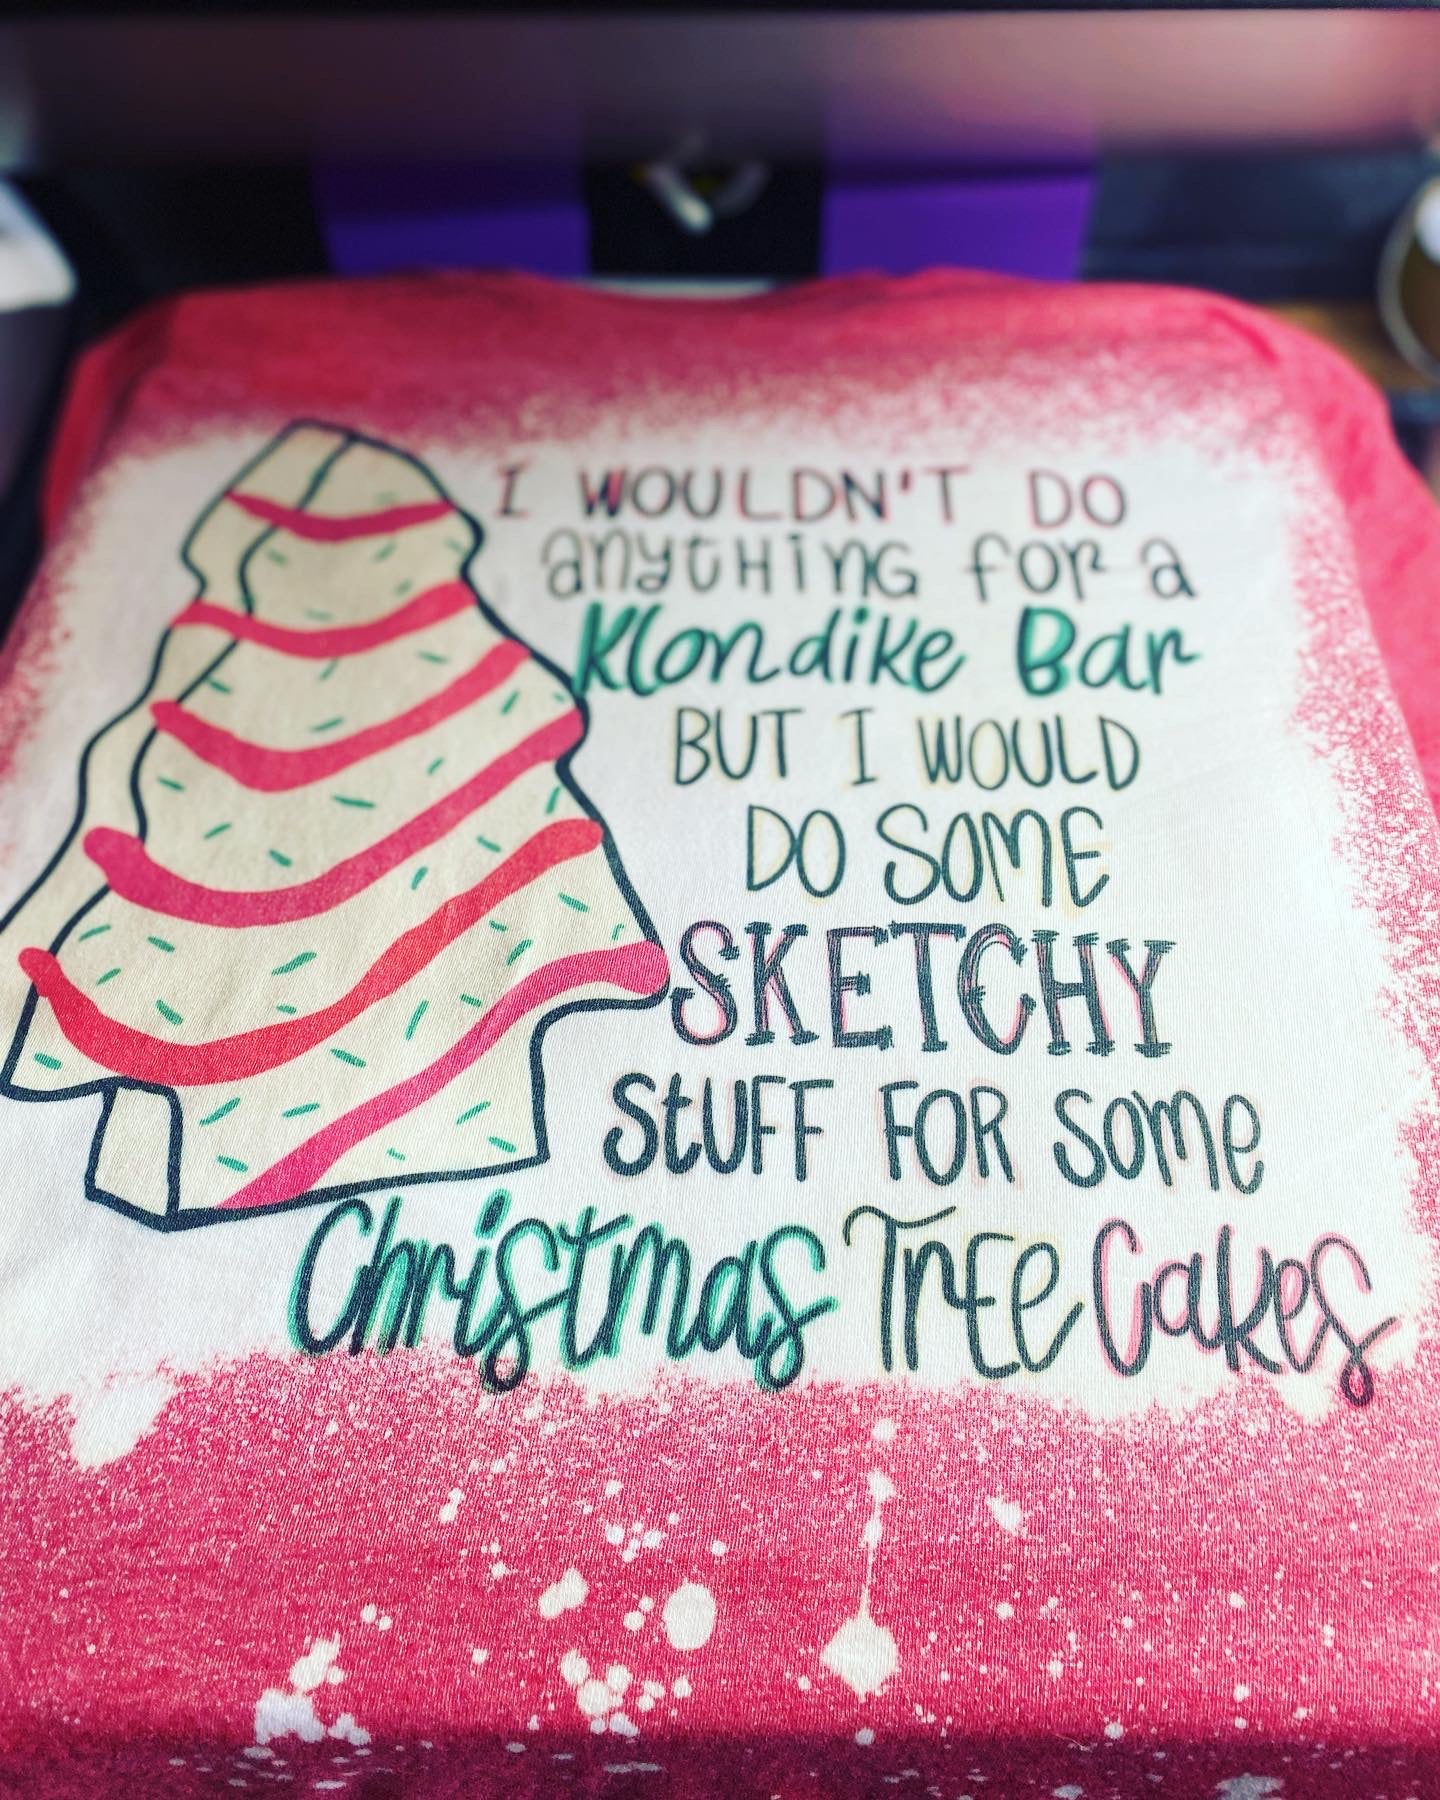 I WOULDN'T DO
anytHiNG for a
Klondike Bar
BUT I WOULD
DO SOME
SKETCHY
StUFF FOR Some
Christmas TrEe Cakes